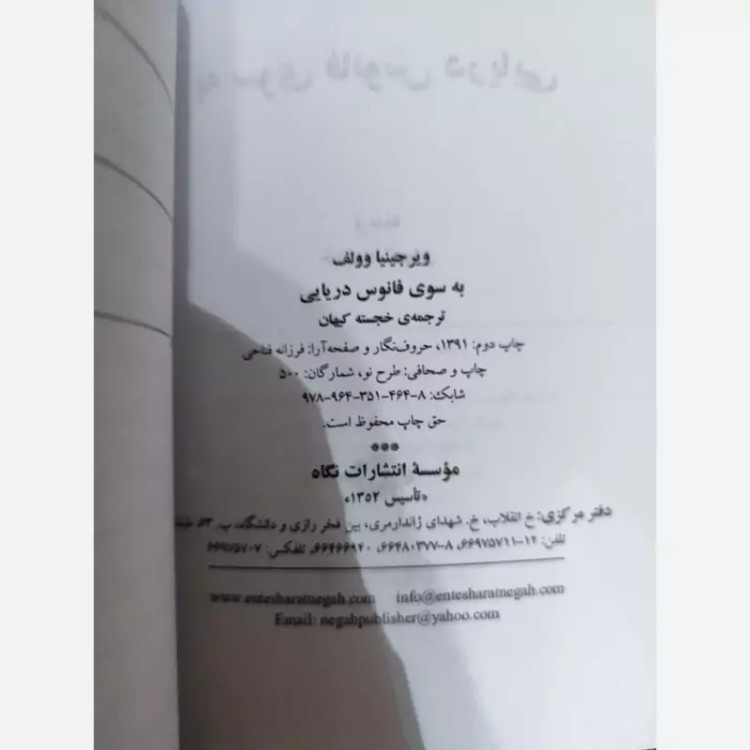 ویرجینیا وولف
به سوی فانوس دریایی
ترجمه‌ی خجسته کیهان
چاپ دوم: ۱۳۹۱، حروف‌نگار و صفحه‌آرا: فرزانه فتاحی
چاپ و صحافی: طرح نو، شمارگان: ۵۰۰
شابک: ۸-۴۶۴-۳۵۱-۹۶۴-۹۷۸
حق چاپ محفوظ است.
***
مؤسسهٔ انتشارات نگاه
«تأسیس ۱۳۵۲»
دفتر مرکزی: خ انقلاب، خ. شهدای ژاندارمری، بین فخر رازی و دانشگاه، پ. ۶۳،
تلفن: ۱۲-۶۶۹۷۵۷۱۱، ۸-۶۶۴۸۰۳۷۷، ۶۶۴۶۶۹۴۰، تلفکس: ۶۶۹۷۵۷۰۷
www.entesharatnegah.com info@entesharatnegah.com
Email: negahpublisher@yahoo.com